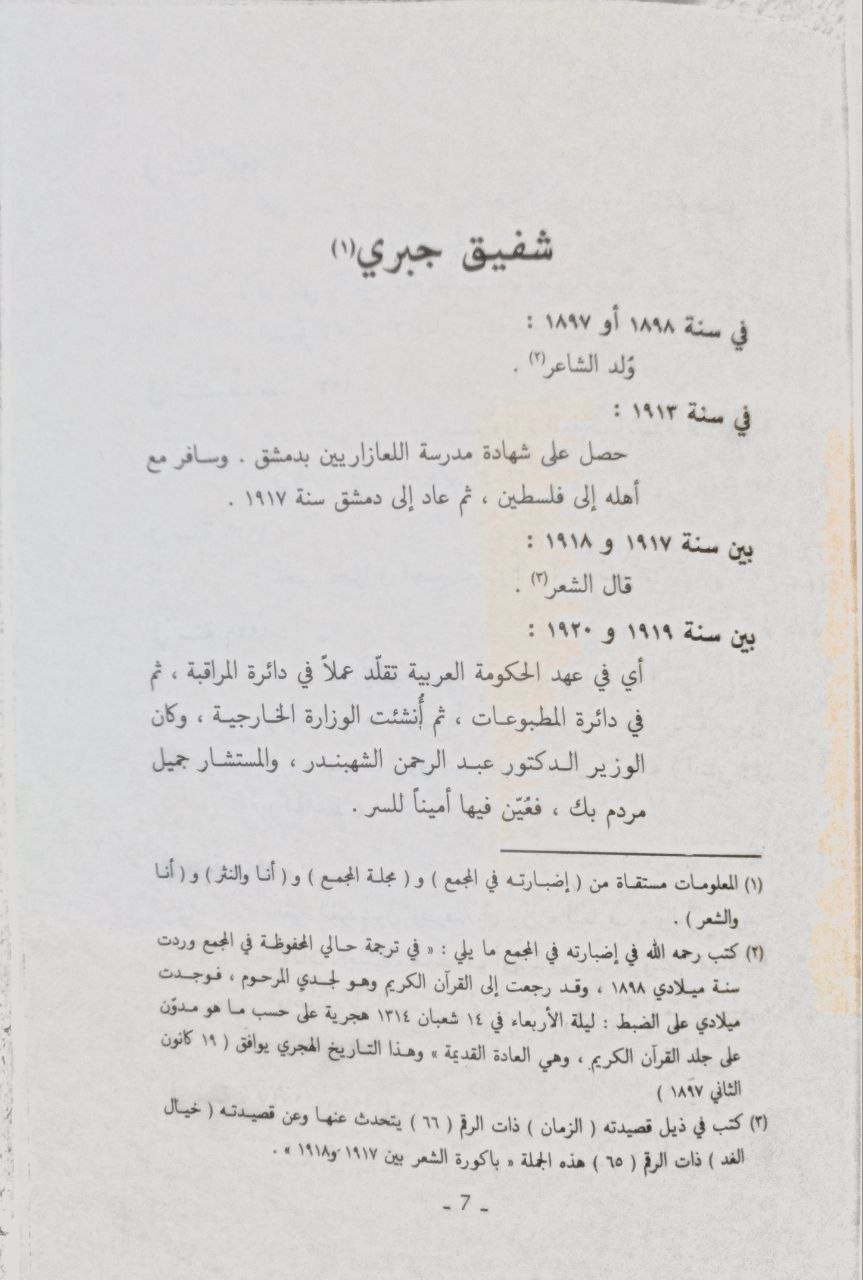 شفيق جبري(١)
في سنة ١٨٩٨ أو ١٨٩٧ :
وُلد الشاعر(٢) .
في سنة ١٩١٣ :
حصل على شهادة مدرسة اللعازاريين بدمشق . وسافر مع
أهله إلى فلسطين ، ثم عاد إلى دمشق سنة ١٩١٧ .
بين سنة ١٩١٧ و ١٩١٨ :
قال الشعر(٣) .
بين سنة ١٩١٩ و ١٩٢٠ :
أي في عهد الحكومة العربية تقلّد عملاً في دائرة المراقبة ، ثم
في دائرة المطبوعات ، ثم أُنشئت الوزارة الخارجية ، وكان
الوزير الدكتور عبد الرحمن الشهبندر ، والمستشار جميل
مردم بك ، فعُيّن فيها أميناً للسر .
(١) المعلومات مستقاة من ( إضبارته في المجمع ) و ( مجلة المجمع ) و ( أنا والنثر ) و ( أنا
والشعر ) .
(٢) كتب رحمه الله في إضبارته في المجمع ما يلي : « في ترجمة حالي المحفوظة في المجمع وردت
سنة ميلادي ١٨٩٨ ، وقد رجعت إلى القرآن الكريم وهو لجدي المرحوم ، فوجدت
ميلادي على الضبط : ليلة الأربعاء في ١٤ شعبان ١٣١٤ هجرية على حسب ما هو مدوّن
على جلد القرآن الكريم ، وهي العادة القديمة » وهذا التاريخ الهجري يوافق ( ١٩ كانون
الثاني ١٨٩٧ )
(٣) كتب في ذيل قصيدته ( الزمان ) ذات الرقم ( ٦٦ ) يتحدث عنها وعن قصيدته ( خيال
الغد ) ذات الرقم ( ٦٥ ) هذه الجملة « باكورة الشعر بين ١٩١٧ و١٩١٨ » .
- 7 -